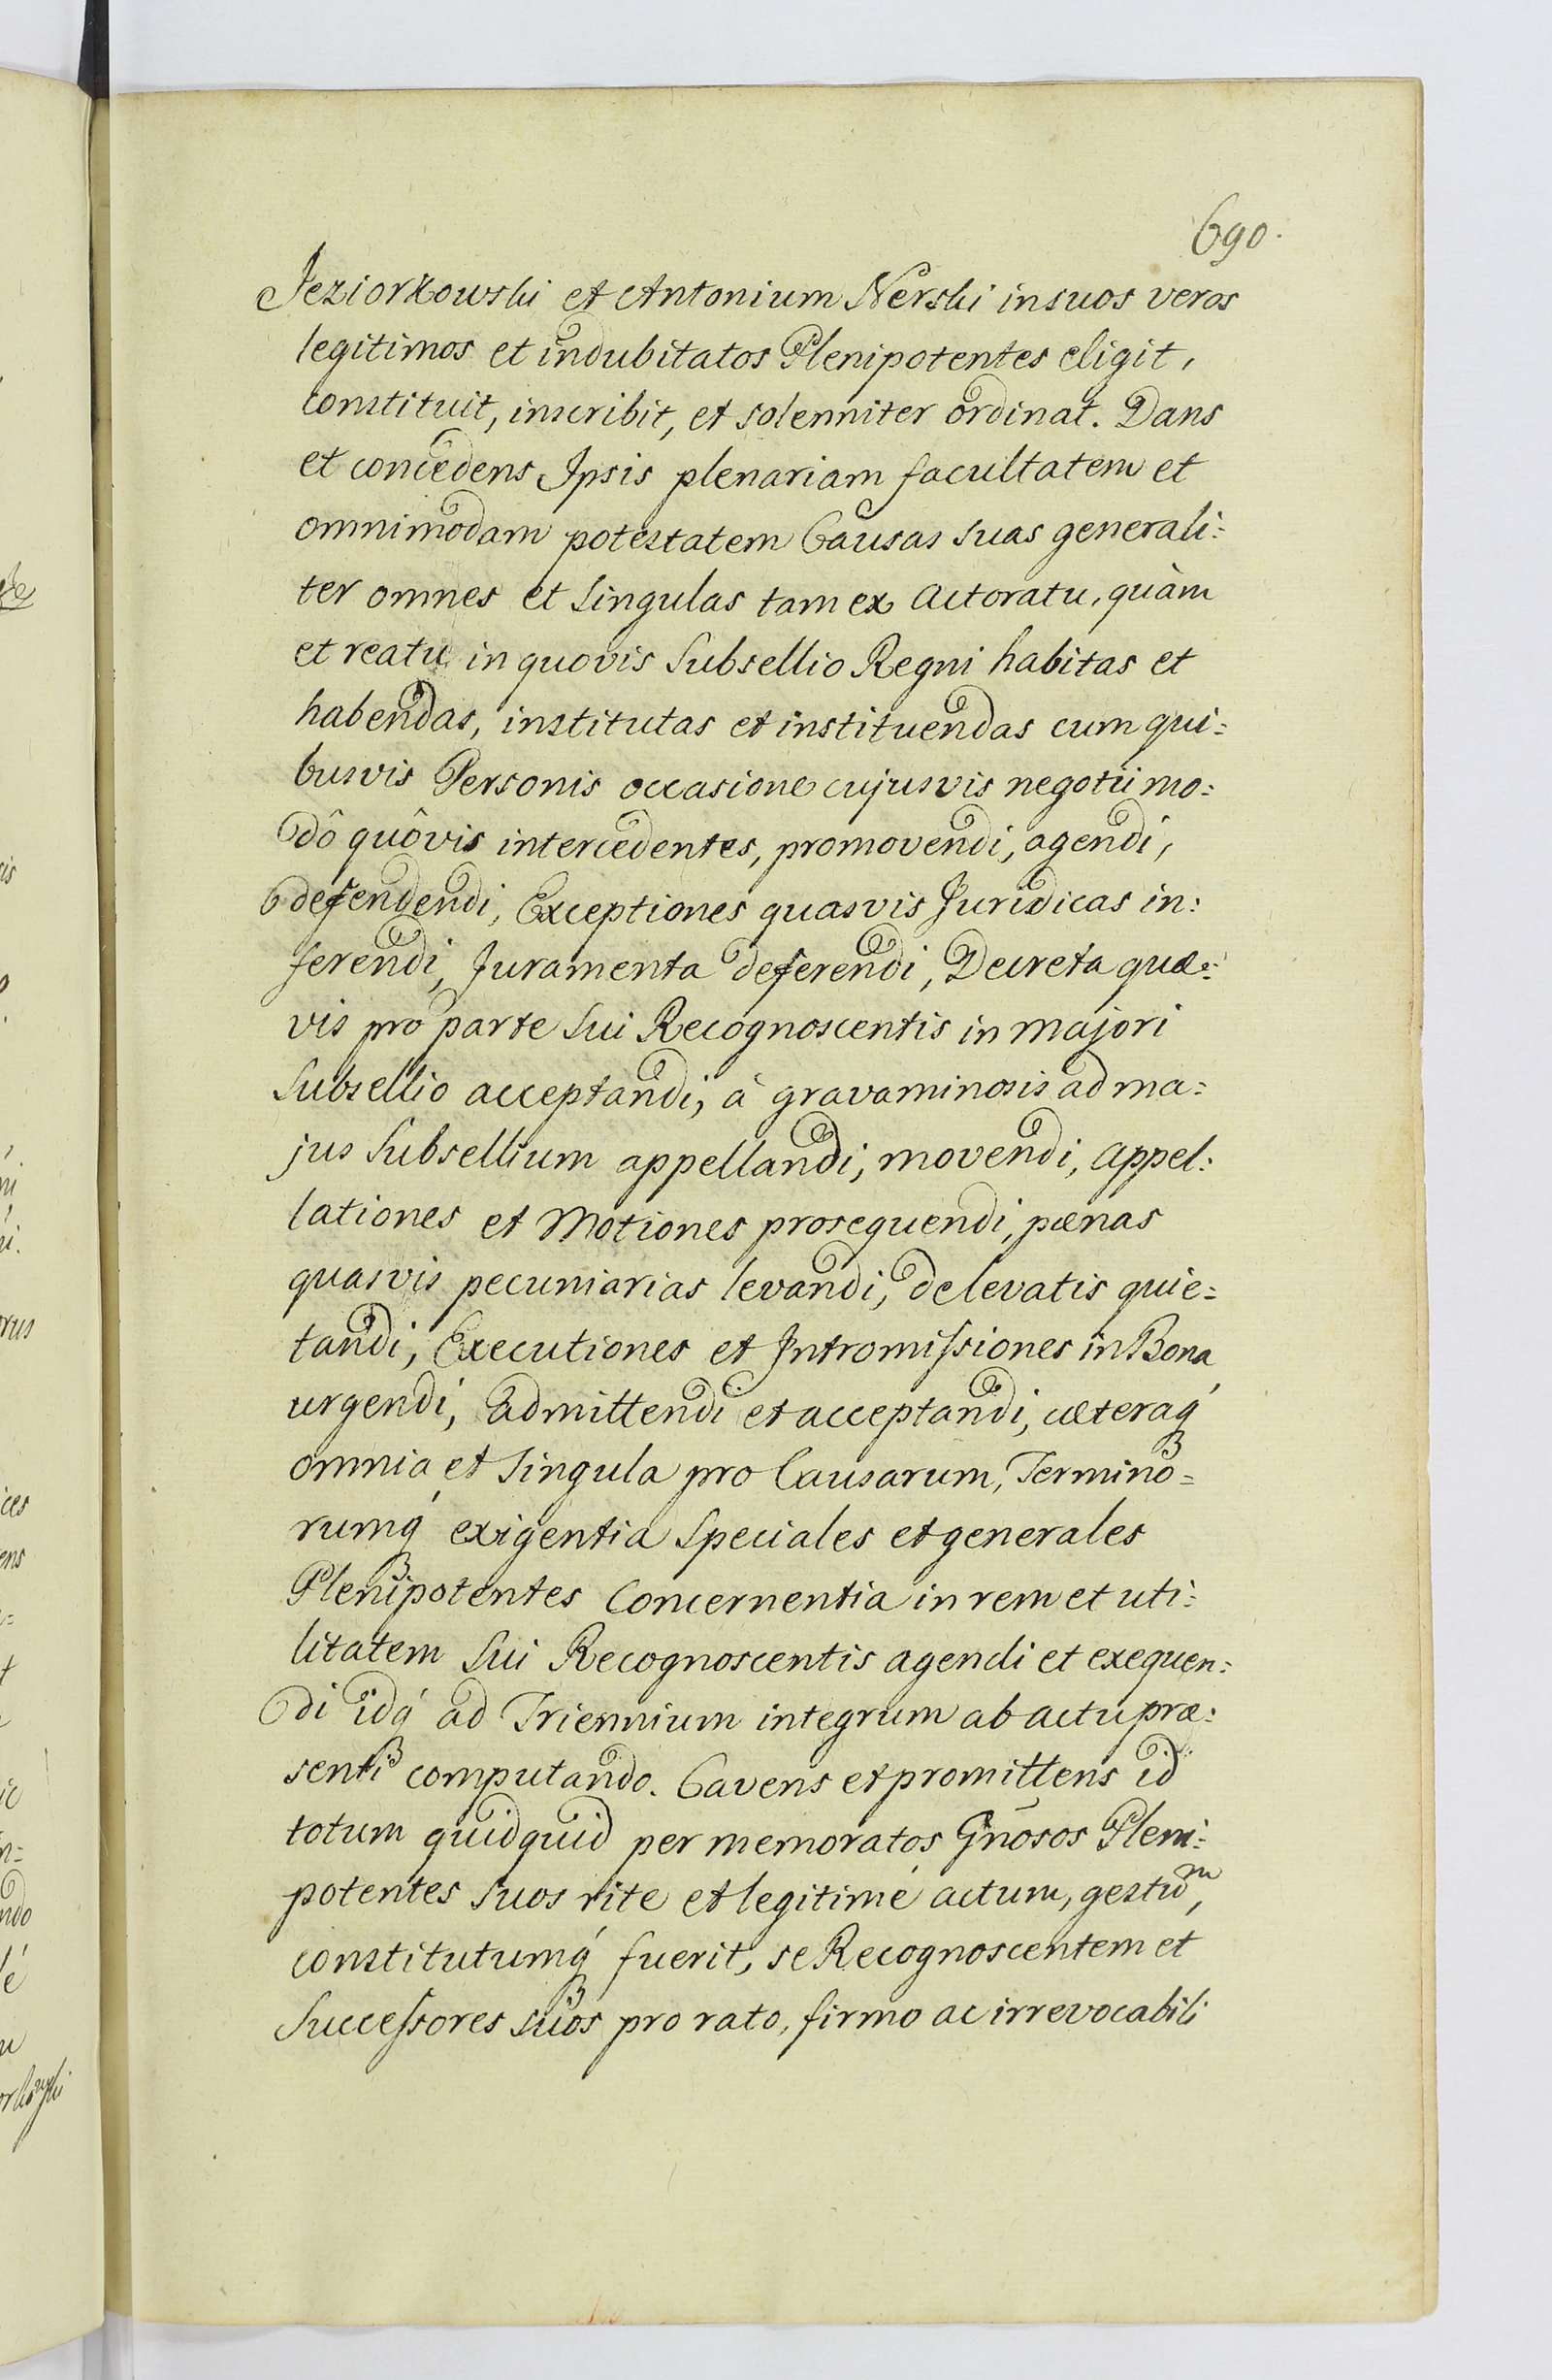 690.
Jeziorkowski et Antonium Nerski in suos veros
legitimos et indubitatos Plenipotentes eligit,
constituit, inscribit, et solenniter ordinat. Dans
et concedens Ipsis plenariam facultatem et
omnimodam potestatem Causas suas generali:
ter omnes et singulas tam ex actoratu, quàm
et reatu in quovis Subsellio Regni habitas et
habendas, institutas et instituendas cum qui:
busvis Personis occasione cujusvis negotii mo:
dô quôvis intercedentes, promovendi, agendi,
defendendi, Exceptiones quasvis Juridicas in:
ferendi, Juramenta deferendi, Decreta quæ:
vis pro parte sui Recognoscentis in majori
Subsellio acceptandi, à gravaminosis ad ma:
jus Subsellium appellandi, movendi, appel:
lationes et Motiones prosequendi, pænas
quasvis pecuniarias levandi, de levatis quie:
tandi, Executiones et Intromissiones in Bona
urgendi, admittendi et acceptandi, cæteraq́ꝫ
omnia et singula pro Causarum, Termino:
rumq́ꝫ exigentia speciales et generales
Plenipotentes concernentia in rem et uti:
litatem sui Recognoscentis agendi et exequen:
di idq́ꝫ ad Triennium integrum ab actu præ:
senti computando. Cavens et promittens id
totum quidquid per memoratos Gnōsos Pleni:
potentes suos rite et legitimé actum, gestuᵐ,
constitutumq́ꝫ fuerit, se Recognoscentem et
Successores suos pro rato, firmo ac irrevocabili